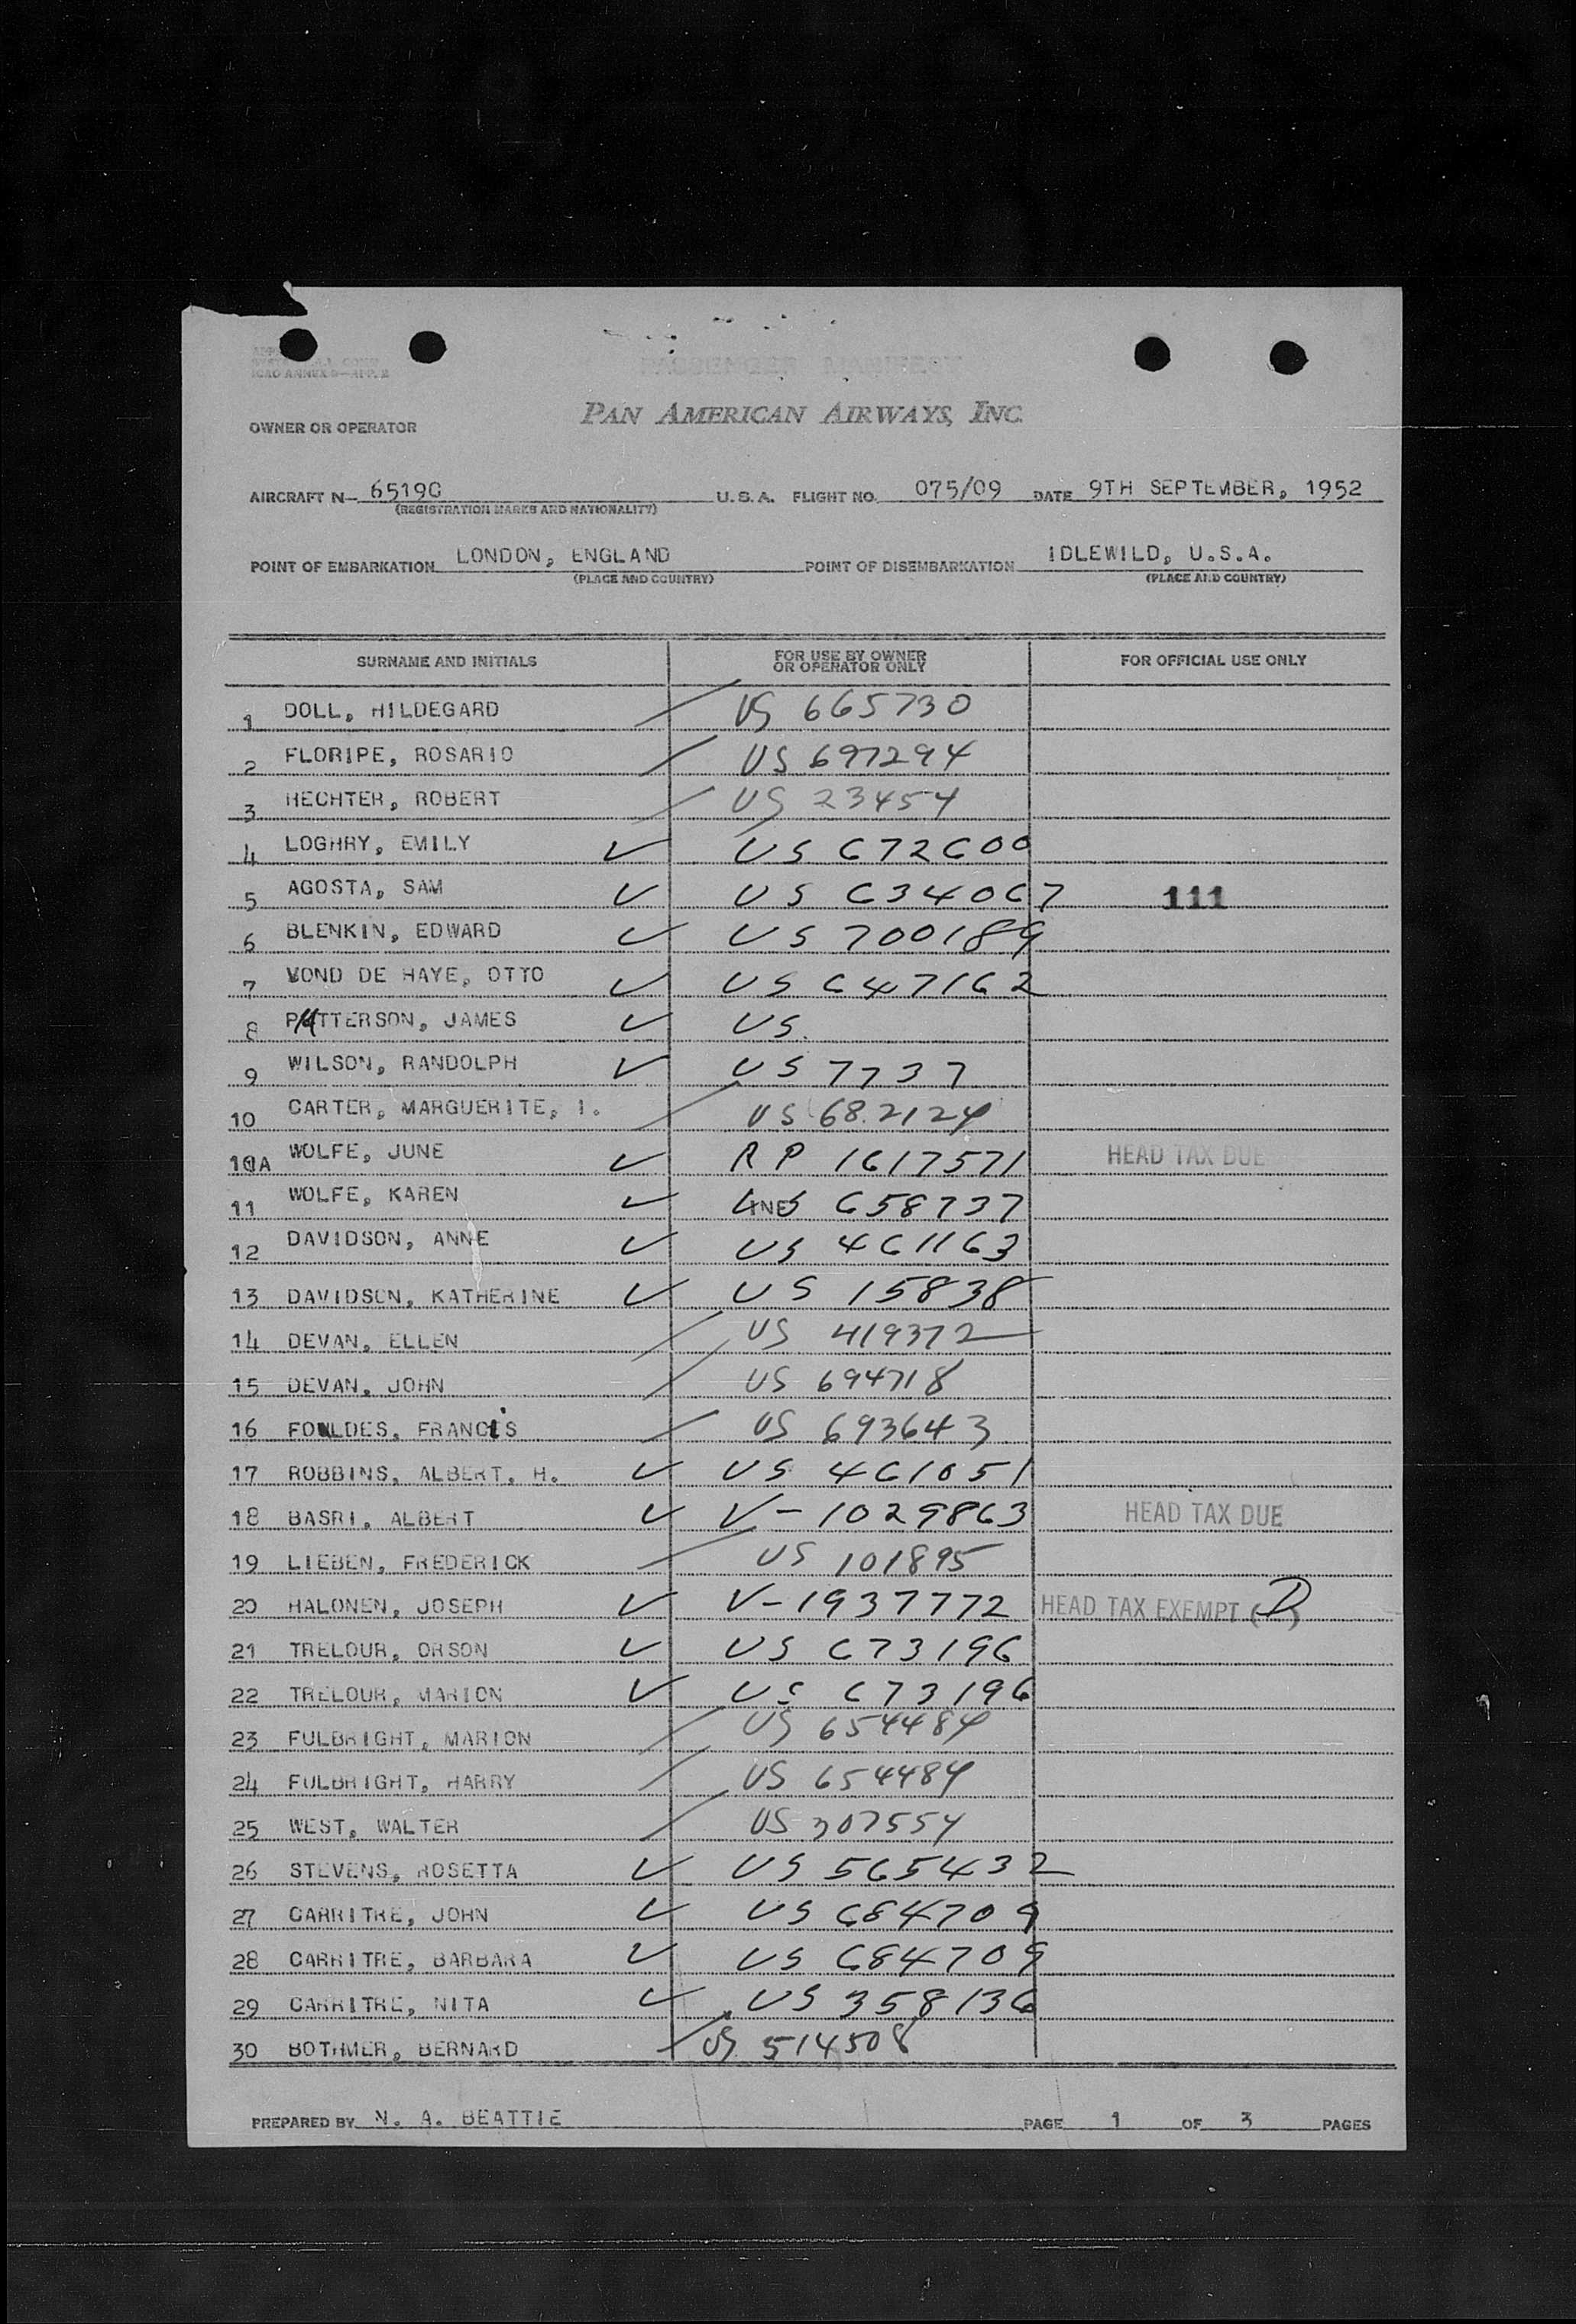 PASSENGER MANIFEST
ICAO ANNEX 9—APP. 2
OWNER OR OPERATOR PAN AMERICAN AIRWAYS, INC.
AIRCRAFT N— 6519C U.S.A. FLIGHT NO. 075/09 DATE 9TH SEPTEMBER, 1952
(REGISTRATION MARKS AND NATIONALITY)
POINT OF EMBARKATION LONDON, ENGLAND POINT OF DISEMBARKATION IDLEWILD, U.S.A.
(PLACE AND COUNTRY) (PLACE AND COUNTRY)
SURNAME AND INITIALS FOR USE BY OWNER OR OPERATOR ONLY FOR OFFICIAL USE ONLY
1 DOLL, HILDEGARD US 665730
2 FLORIPE, ROSARIO US 697294
3 HECHTER, ROBERT US 23454
4 LOGHRY, EMILY ✓ US 672600
5 AGOSTA, SAM ✓ US 634067 111
6 BLENKIN, EDWARD ✓ US 700189
7 VOND DE HAYE, OTTO ✓ US 647162
8 PATTERSON, JAMES ✓ US.
9 WILSON, RANDOLPH ✓ US 7737
10 CARTER, MARGUERITE, I. US 682124
10A WOLFE, JUNE ✓ RP 1617571 HEAD TAX DUE
11 WOLFE, KAREN ✓ US 658737
12 DAVIDSON, ANNE ✓ US 461163
13 DAVIDSON, KATHERINE ✓ US 15838
14 DEVAN, ELLEN US 419372
15 DEVAN, JOHN US 694718
16 FOULDES, FRANCIS US 693643
17 ROBBINS, ALBERT, H. ✓ US 461051
18 BASRI, ALBERT ✓ V-1029863 HEAD TAX DUE
19 LIEBEN, FREDERICK US 101895
20 HALONEN, JOSEPH ✓ V-1937772 HEAD TAX EXEMPT (D)
21 TRELOUR, ORSON ✓ US 673196
22 TRELOUR, MARION ✓ US 673196
23 FULBRIGHT, MARION US 654484
24 FULBRIGHT, HARRY US 654484
25 WEST, WALTER US 307554
26 STEVENS, ROSETTA ✓ US 565432
27 CARRITRE, JOHN ✓ US 684709
28 CARRITRE, BARBARA ✓ US 684709
29 CARRITRE, NITA ✓ US 358136
30 BOTHMER, BERNARD US 514508
PREPARED BY N. A. BEATTIE PAGE 1 OF 3 PAGES